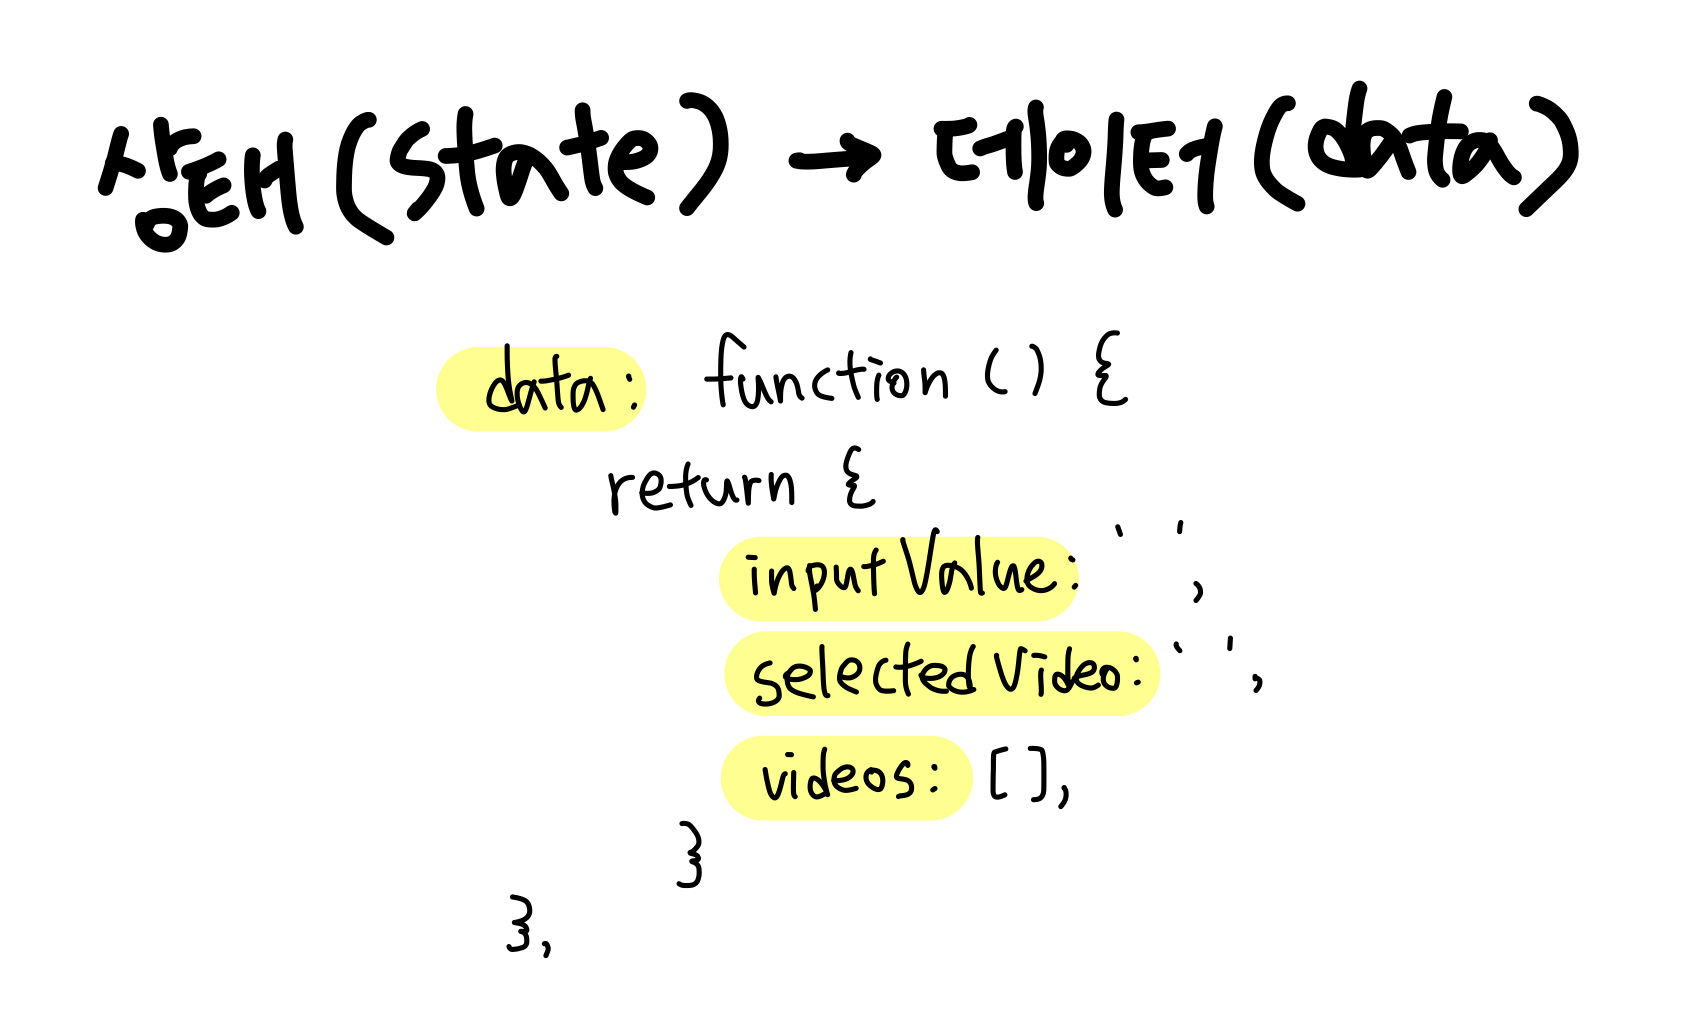 상태(state) → 데이터(data)
data: function () {
return {
inputValue: ' ',
selectedVideo: ' ',
videos: [],
}
},